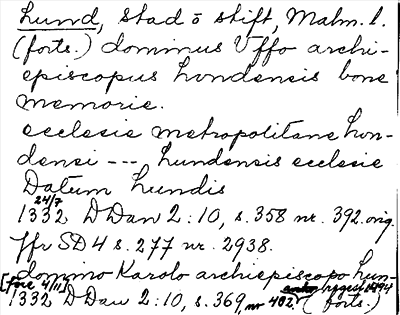 Lund, stad o stift, Malm. l.
(forts.) dominus Vffo archi-
episcopus Lundensis bone
memorie.
ecclesie metropolitane Lun-
densi --- Lundensis ecclesie
Datum Lundis
24/7
1332 D Dan 2:10, s. 358 nr. 392. orig.
Jfr SD 4 s. 277 nr. 2938.
domino Karolo archiepiscopo Lun-
[före 4/11] 1494
1332 D Dan 2:10, s. 369, nr 402. (forts.)